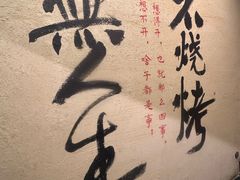 不烧烤
想得开，也就那么回事；
想不开，啥子都是事！
無人生